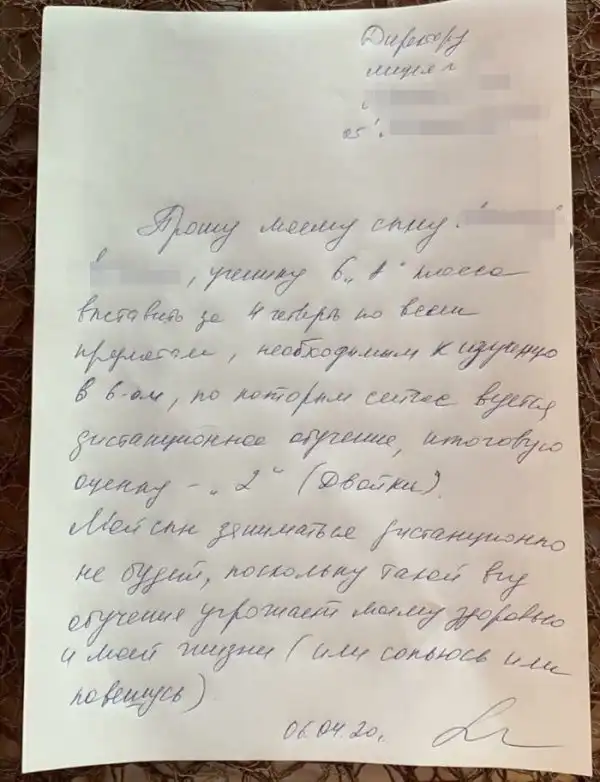 Директору
лицея
Прошу моему сыну
, ученику 6 „А" класса
выставить за 4 четверть по всем
предметам, необходимым к изучению
в 6-ом, по которым сейчас ведется
дистанционное обучение, итоговую
оценку - „2" (Двойки).
Мой сын заниматься дистанционно
не будет, поскольку такой вид
обучения угрожает моему здоровью
и моей жизни (или сопьюсь или
повешусь)
06.04.20.